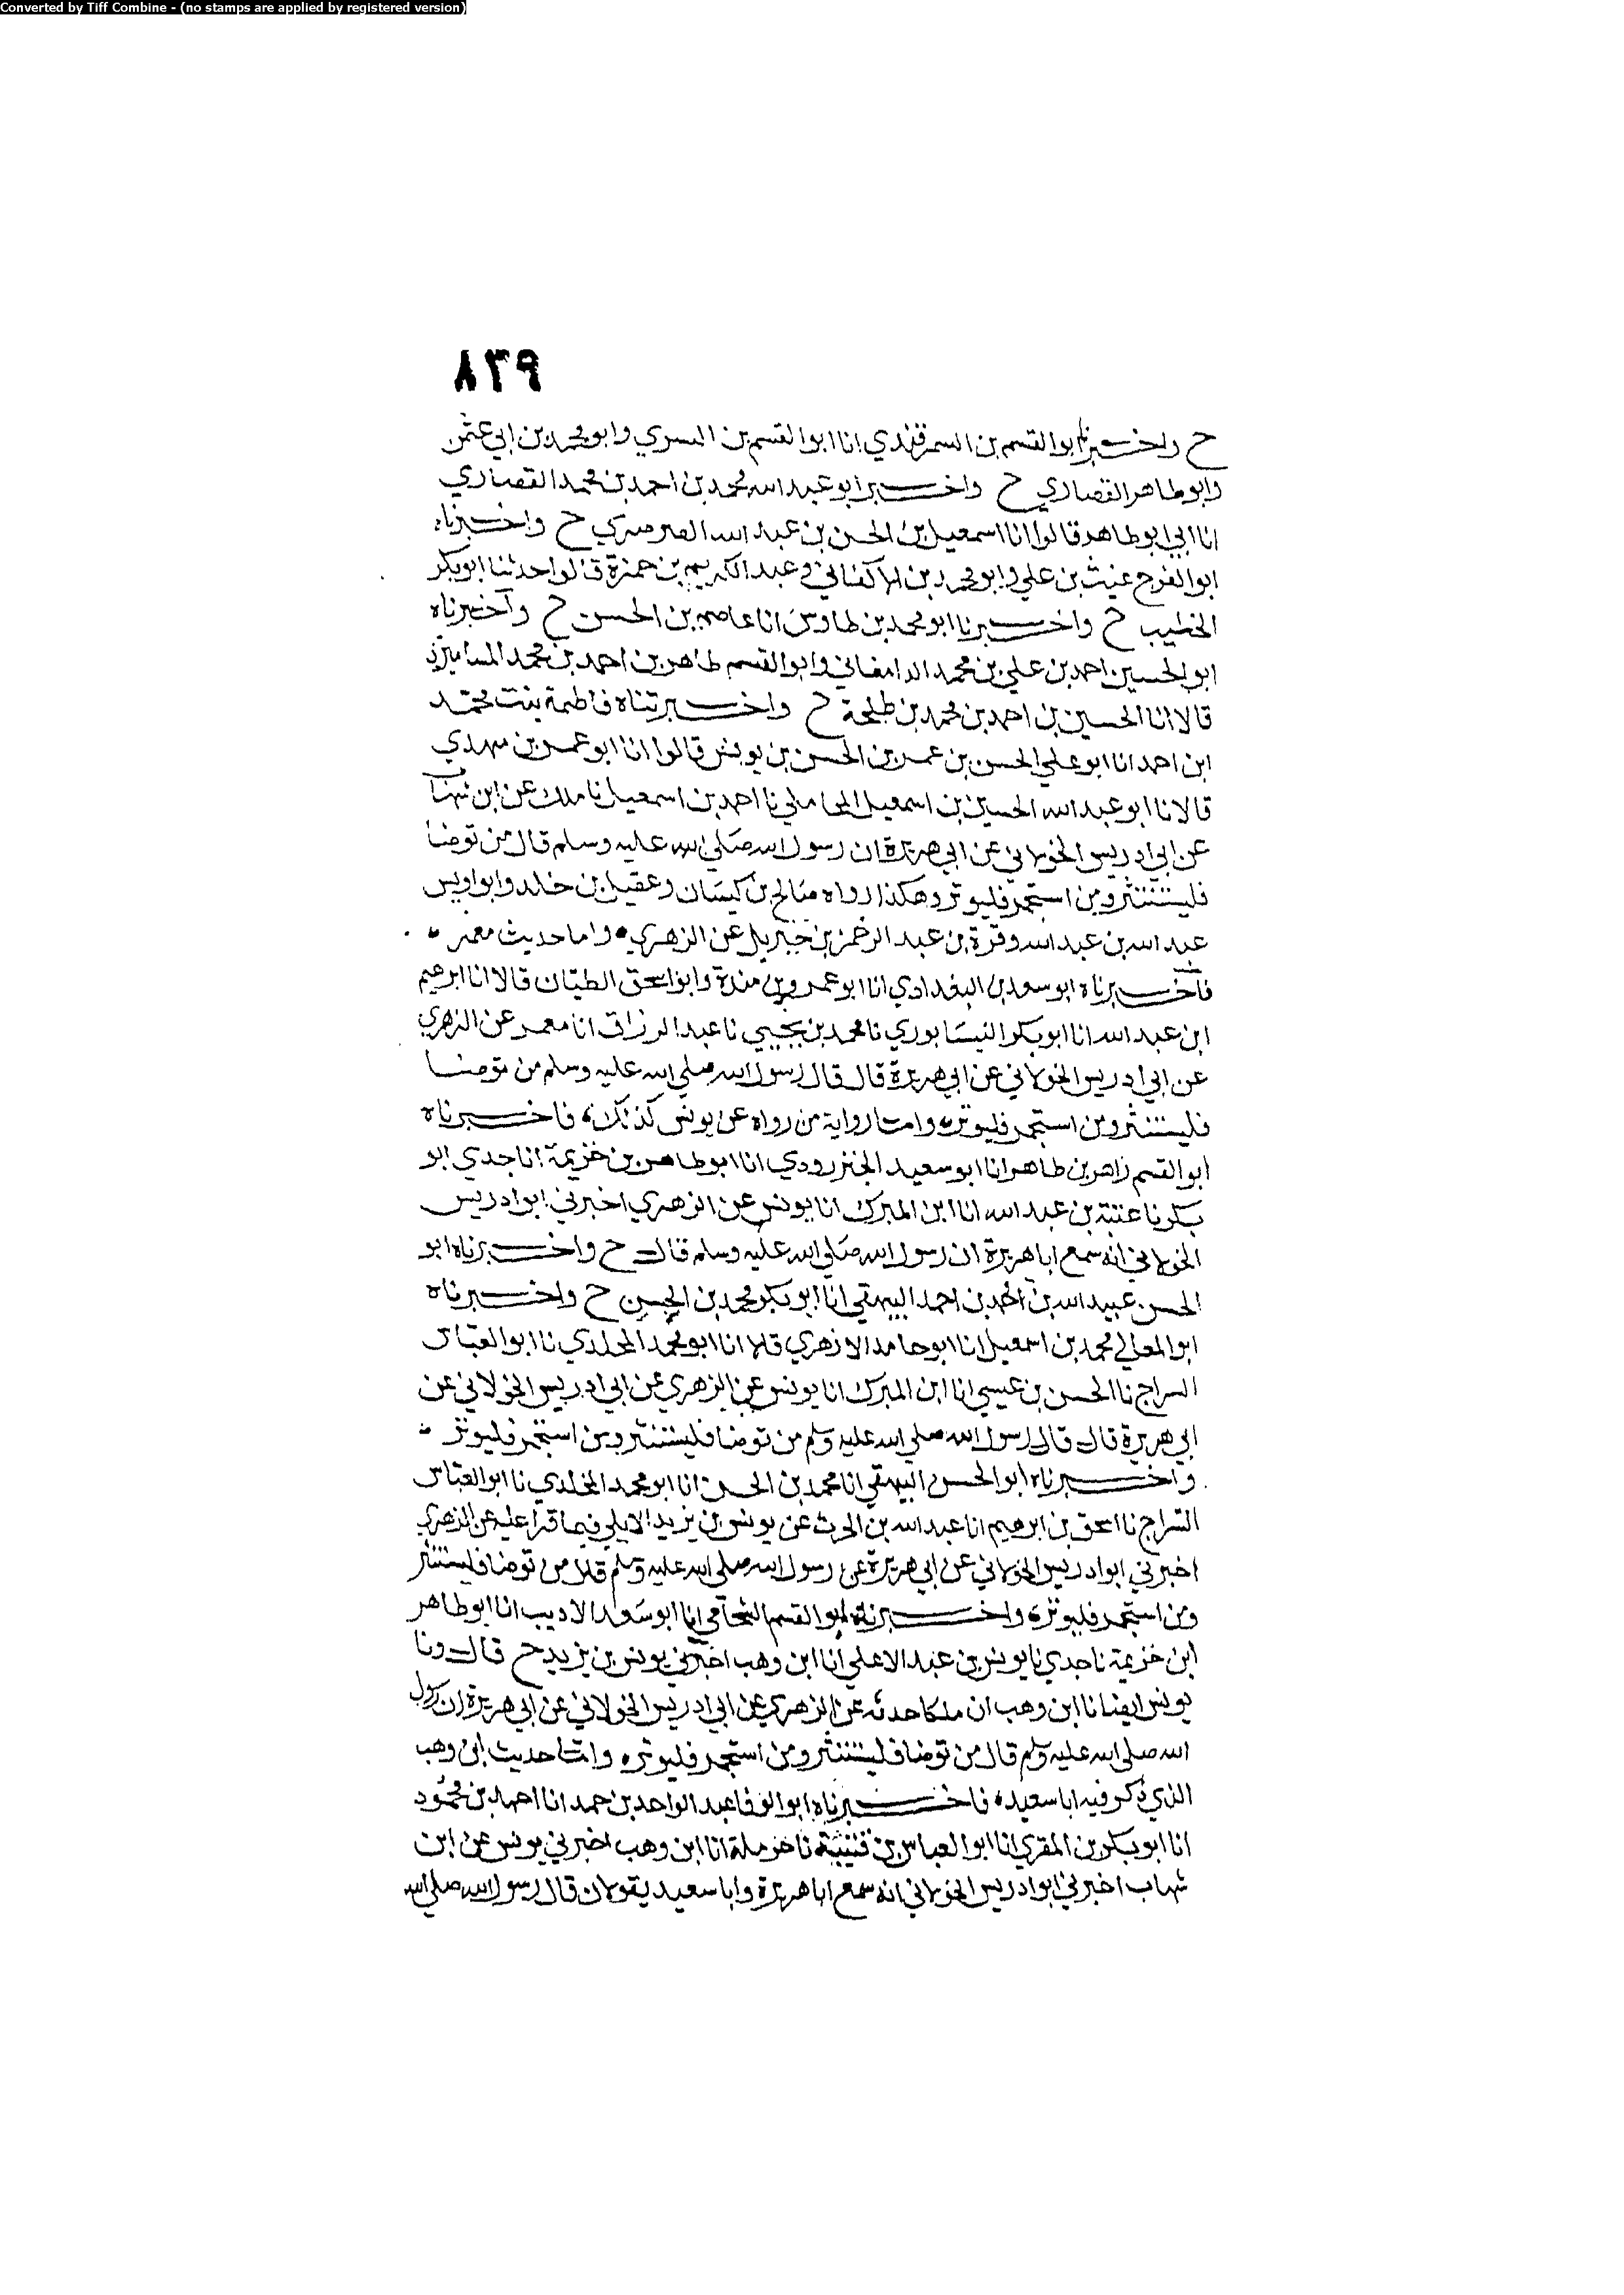 Converted by Tiff Combine - (no stamps are applied by registered version)
٨٣٩
ح واخبرنا ابو القسم بن السمرقندي انا ابو القسم بن البسري وابو محمد بن ابي عثمن
وابو طاهر القصاري ح واخبرنا ابو عبد الله محمد بن احمد بن محمد القصاري
انا ابي ابو طاهر قالوا انا اسمعيل بن الحسن بن عبد الله الصرصري ح واخبرناه
ابو الفرج غيث بن علي وابو محمد بن الاكفاني وعبد الكريم بن حمزة قالوا حدثنا ابو بكر
الخطيب ح واخبرنا ابو محمد بن طاوس انا عاصم بن الحسن ح وأخبرناه
ابو الحسين احمد بن علي بن محمد الدامغاني وابو القسم طاهر بن احمد بن محمد المساميري
قالا انا الحسين بن احمد بن محمد بن طلحة ح واخبرتناه فاطمة بنت محمد
ابن احمد انا ابو علي الحسن بن عمر بن الحسن بن يونس قالوا انا ابو عمر بن مهدي
قالا نا ابو عبد الله الحسين بن اسمعيل المحاملي نا احمد بن اسمعيل نا ملك عن ابن شهاب
عن ابي ادريس الخولاني عن ابي هريرة ان رسول الله صلى الله عليه وسلم قال من توضا
فليستنثر ومن استجمر فليوتر وهكذا رواه صالح بن كيسان وعقيل بن خالد وابو اويس
عبد الله بن عبد الله وقرة بن عبد الرحمن بن جبريل عن الزهري واما حديث معمر
فاخبرناه ابو سعد بن البغدادي انا ابو عمرو بن مندة وابو اسحق الطيان قالا انا ابرهيم
ابن عبد الله انا ابو بكر النيسابوري نا محمد بن يحيي نا عبد الرزاق انا معمر عن الزهري
عن ابي ادريس الخولاني عن ابي هريرة قال قال رسول الله صلي الله عليه وسلم من توضا
فليستنثر ومن استجمر فليوتر واما رواية من رواه عن يونس كذلك فاخبرناه
ابو القسم زاهر بن طاهر انا ابو سعيد الجنزرودي انا ابو طاهر بن خزيمة انا جدي ابو
بكر نا عتبة بن عبد الله انا ابن المبرك انا يونس عن الزهري اخبرني ابو ادريس
الخولاني انه سمع ابا هريرة ان رسول الله صلي الله عليه وسلم قال ح واخبرناه ابو
الحسن عبيد الله بن محمد بن احمد البيهقي انا ابو بكر محمد بن الحسن ح واخبرناه
ابو المعالي محمد بن اسمعيل انا ابو حامد الازهري قالا انا ابو محمد المخلدي نا ابو العباس
السراج نا الحسن بن عيسي انا ابن المبرك انا يونس عن الزهري عن ابي ادريس الخولاني عن
ابي هريرة قال قال رسول الله صلي الله عليه وسلم من توضا فليستنثر ومن استجمر فليوتر
واخبرناه ابو الحسن البيهقي انا محمد بن الحسن انا ابو محمد المخلدي نا ابو العباس
السراج نا اسحق بن ابرهيم انا عبد الله بن الحرث عن يونس بن يزيد الايلي فيما قرا عليه عن الزهري
اخبرني ابو ادريس الخولاني عن ابي هريرة عن رسول الله صلي الله عليه وسلم قال من توضا فليستنثر
ومن استجمر فليوتر واخبرناه ابو القسم الشحامي انا ابو سعد الاديب انا ابو طاهر
ابن خزيمة نا جدي نا يونس بن عبد الاعلي انا ابن وهب اخبرني يونس بن يزيد ح قال ونا
يونس ايضا نا ابن وهب ان ملكا حدثه عن الزهري عن ابي ادريس الخولاني عن ابي هريرة ان رسول
الله صلي الله عليه وسلم قال من توضا فليستنثر ومن استجمر فليوتر واما حديث ابن وهب
الذي ذكر فيه ابا سعيد فاخبرناه ابو الوفا عبد الواحد بن حمد انا احمد بن محمود
انا ابو بكر بن المقري انا ابو العباس بن قتيبة نا حرملة انا ابن وهب اخبرني يونس عن ابن
شهاب اخبرني ابو ادريس الخولاني انه سمع ابا هريرة وابا سعيد يقولان قال رسول الله صلي الله